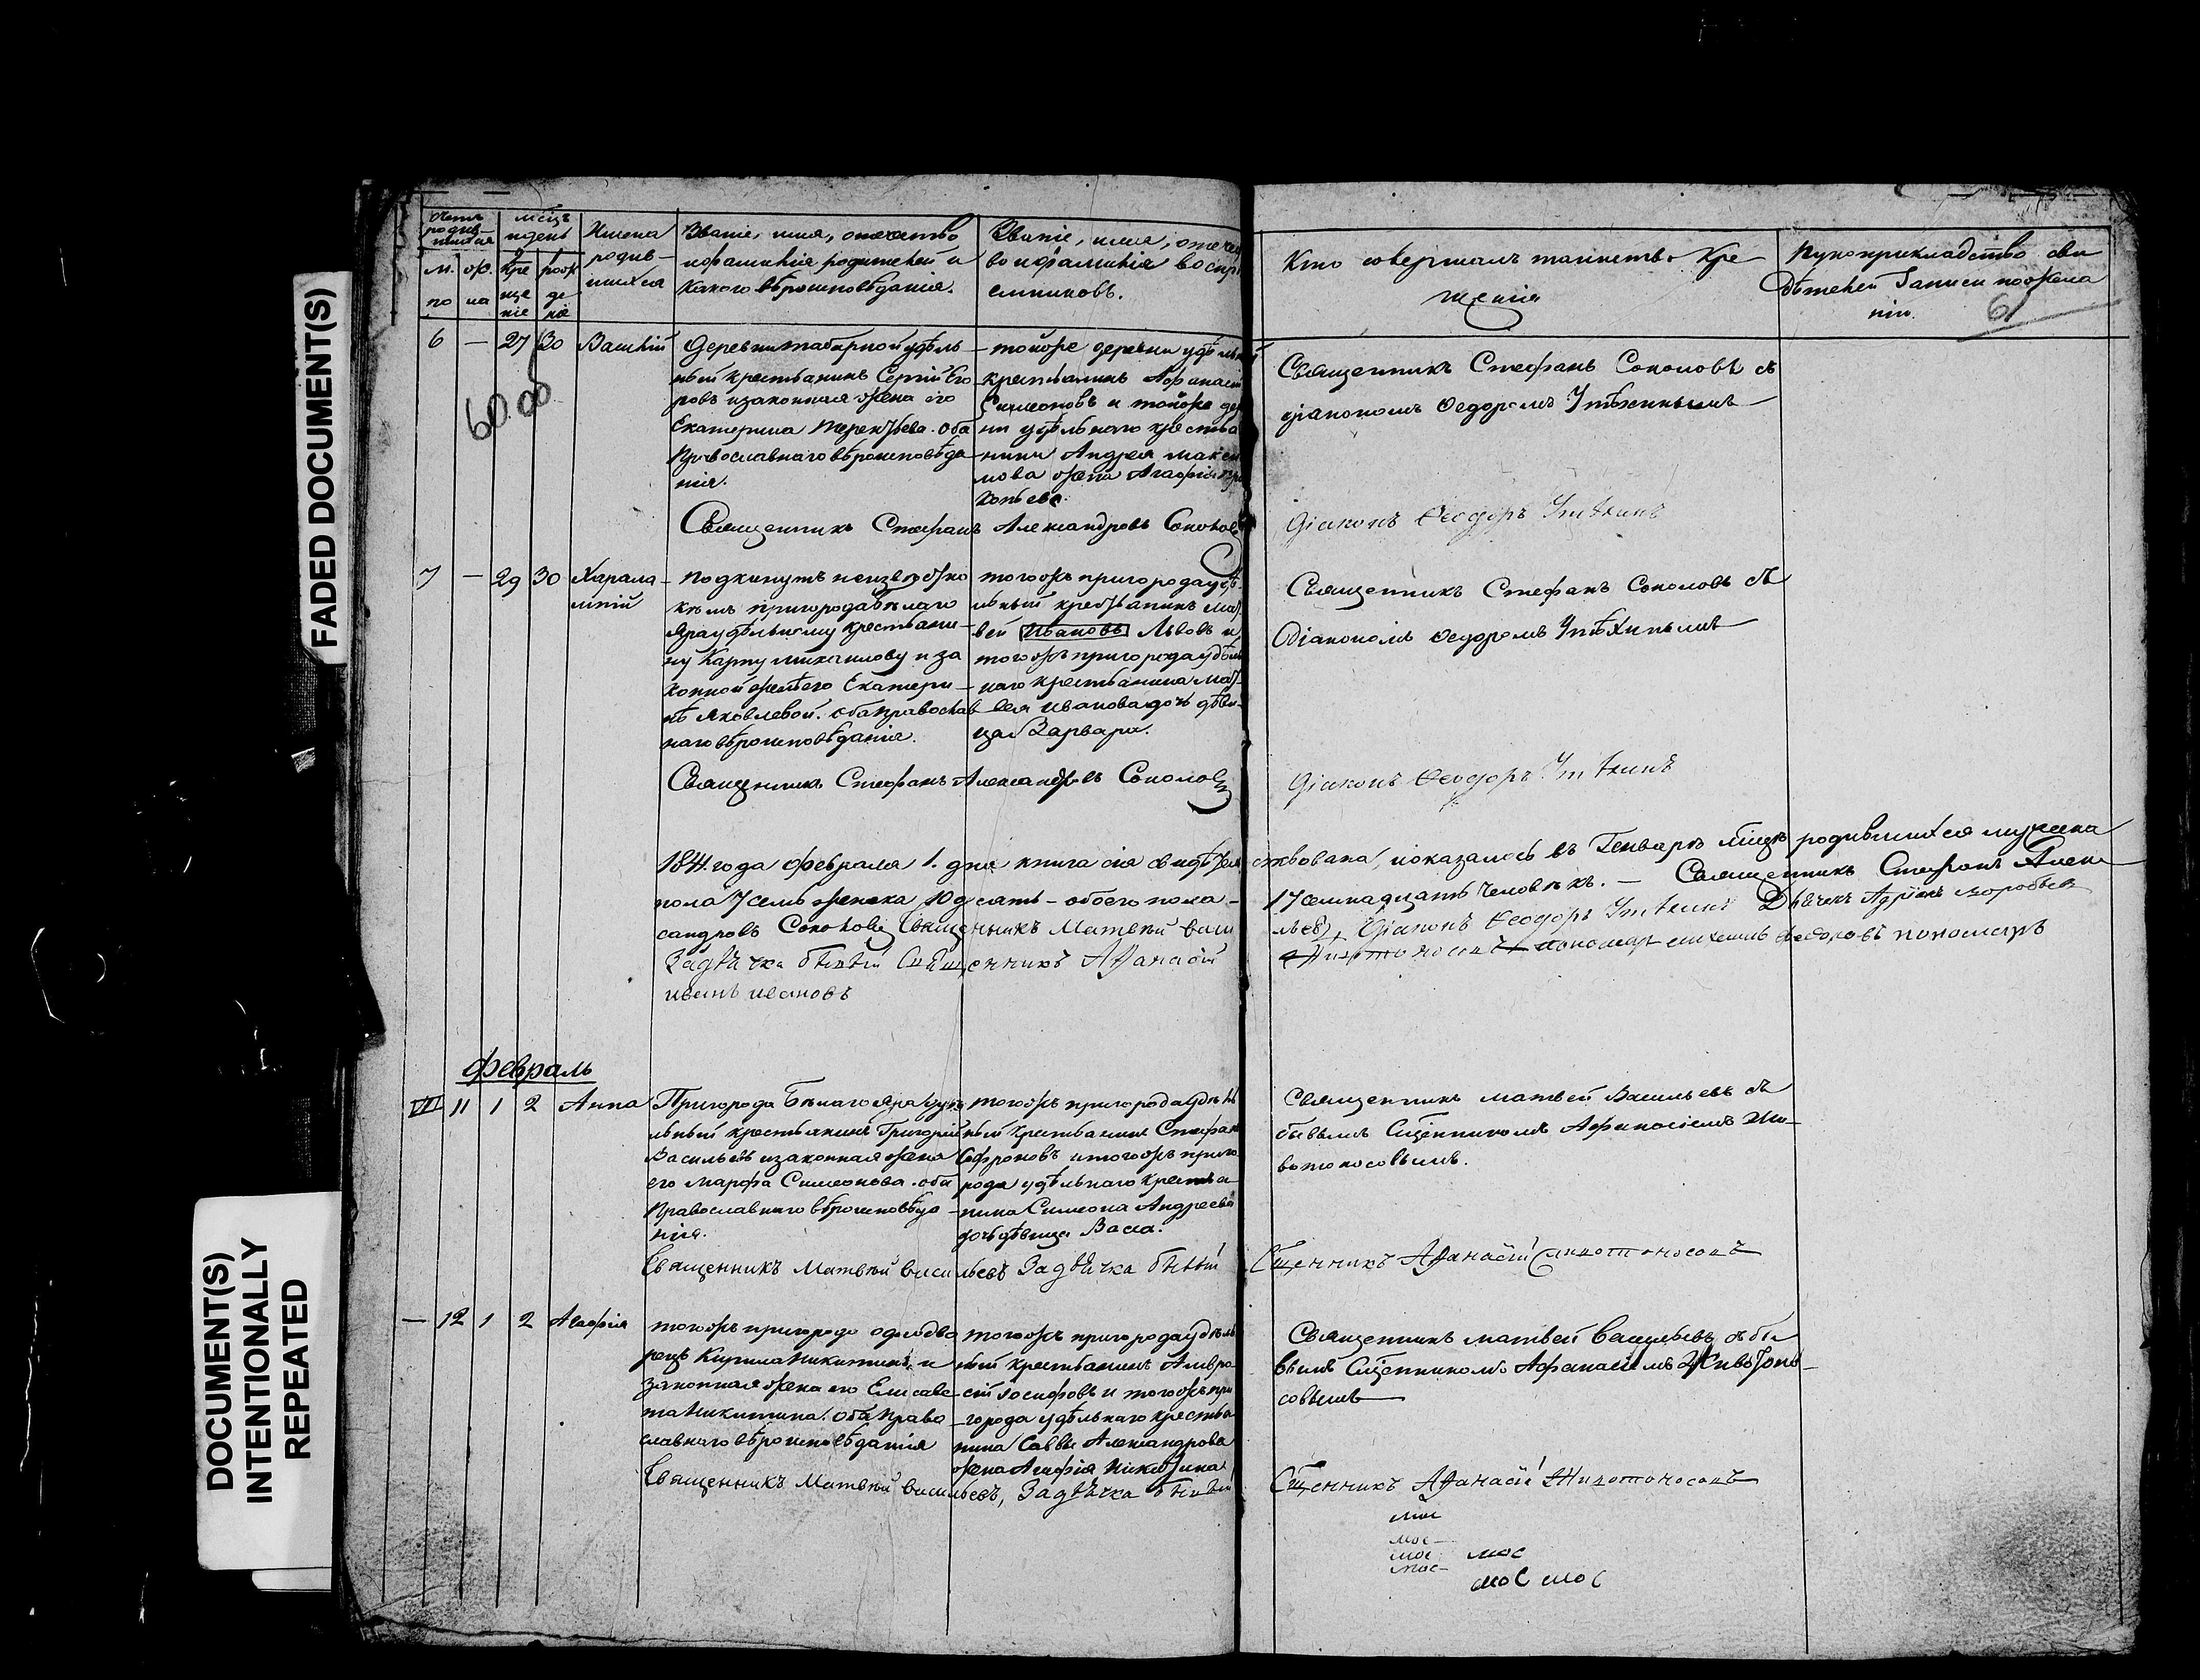 FADED DOCUMENT(S)
DOCUMENT(S)
INTENTIONALLY
REPEATED
Имена
родив-
шихся
Званіе, имя, отечество
ифамилія родителей и
Какого вѣроисповѣданія.
Званіе, имя, отече
во ифамилія воспрі
емниковъ.
м. ж.
по ла
Кто совершалъ таинство Кре
щенія
Рукоприкладство сви
дѣтелей Записи пожела
нію.
61
60 об
6 — 27 30 Василій
Деревни удѣль
ный крестьянинъ Сергій Его
ровъ изаконная жена его
Екатерина Терентьева. оба
Православнаго вѣроисповѣда
нія.
тойже деревни удѣльный
крестьянинъ Афанасій
Симеоновъ и тойже дер
ни удѣльнаго крестья
нина Андрея Макси
мова жена Агафія Про
копьева.
Священникъ Стефанъ Соколовъ съ
діакономъ Ѳедоромъ Утѣхинымъ
Священникъ Стефанъ Александровъ Соколовъ
Діаконъ Ѳеодоръ Утѣхинъ
7 — 29 30 Харала-
мпій
Подкинутъ неизвѣстно
кѣмъ пригорода Бѣлаго
Яра удѣльному крестьяни
ну Карпу Михаилову и за
конной женѣ его Екатери
нѣ Яковлевой. оба православ
наго вѣроисповѣданія.
тогожъ пригорода удѣ
льный крестьянинъ Мат
вей Ивановъ Львовъ и
тогожъ пригорода удѣль
наго крестьянина Мат
вея Иванова дочь дѣви
ца Варвара.
Священникъ Стефанъ Соколовъ съ
Діакономъ Ѳедоромъ Утѣхинымъ
Священникъ Стефанъ Александровъ Соколовъ
Діаконъ Ѳеодоръ Утѣхинъ
1841 года февраля 1. дня книга сія свидѣтельствована, и оказалось въ Генварѣ мѣсяцѣ родившихся мужеска
пола 7 семь женска 10 десять — обоего пола — 17 семнадцать человѣкъ. — Священникъ Стефанъ Алек
сандровъ Соколовъ Священникъ Матвѣй Василь
евъ, Діаконъ Ѳеодоръ Утѣхинъ Дьячекъ Адріанъ Воробьев
Задьячка бывый Священникъ Афанасій
Животоносовъ пономарь Ѳедоровъ пономарь
иванъ ивановъ
Февраль
VII 11 1 2 Анна
Пригорода Бѣлаго Яра удѣ
льный крестьянинъ Григорій
Васильевъ изаконная жена
его Марфа Симеонова. оба
Православнаго вѣроисповѣда
нія.
тогожъ пригорода удѣль
ный крестьянинъ Стефанъ
Софроновъ и тогожъ приго
рода удѣльнаго крестья
нина Симеона Андреева
дочь дѣвица Васса.
Священникъ Матвей Васильевъ съ
бывымъ Сщенникомъ Афанасіемъ Жи
вотоносовымъ.
Священникъ Матвѣй Васильевъ Задьячка бывый Сщенникъ Афанасій Животоносовъ
— 12 1 2 Агафія
тогожъ пригорода однодво
рецъ Кирила Никитинъ, и
законная жена его Елисаве
та Никитина. оба право
славнаго вѣроисповѣданія
тогожъ пригорода удѣль
ный крестьянинъ Амвро
сій Іосифовъ и тогожъ при
города удѣльнаго крестья
нина Саввы Александрова
жена Агафія Никитина
Священникъ Матвей Васильевъ, съ бы
вымъ Сщенникомъ Афанасіемъ Живѣтоно
совымъ
Священникъ Матвѣй Васильевъ, Задьячка бывый Сщенникъ Афанасій Животоносовъ
мос
мос
мос мос
мос
мос мос